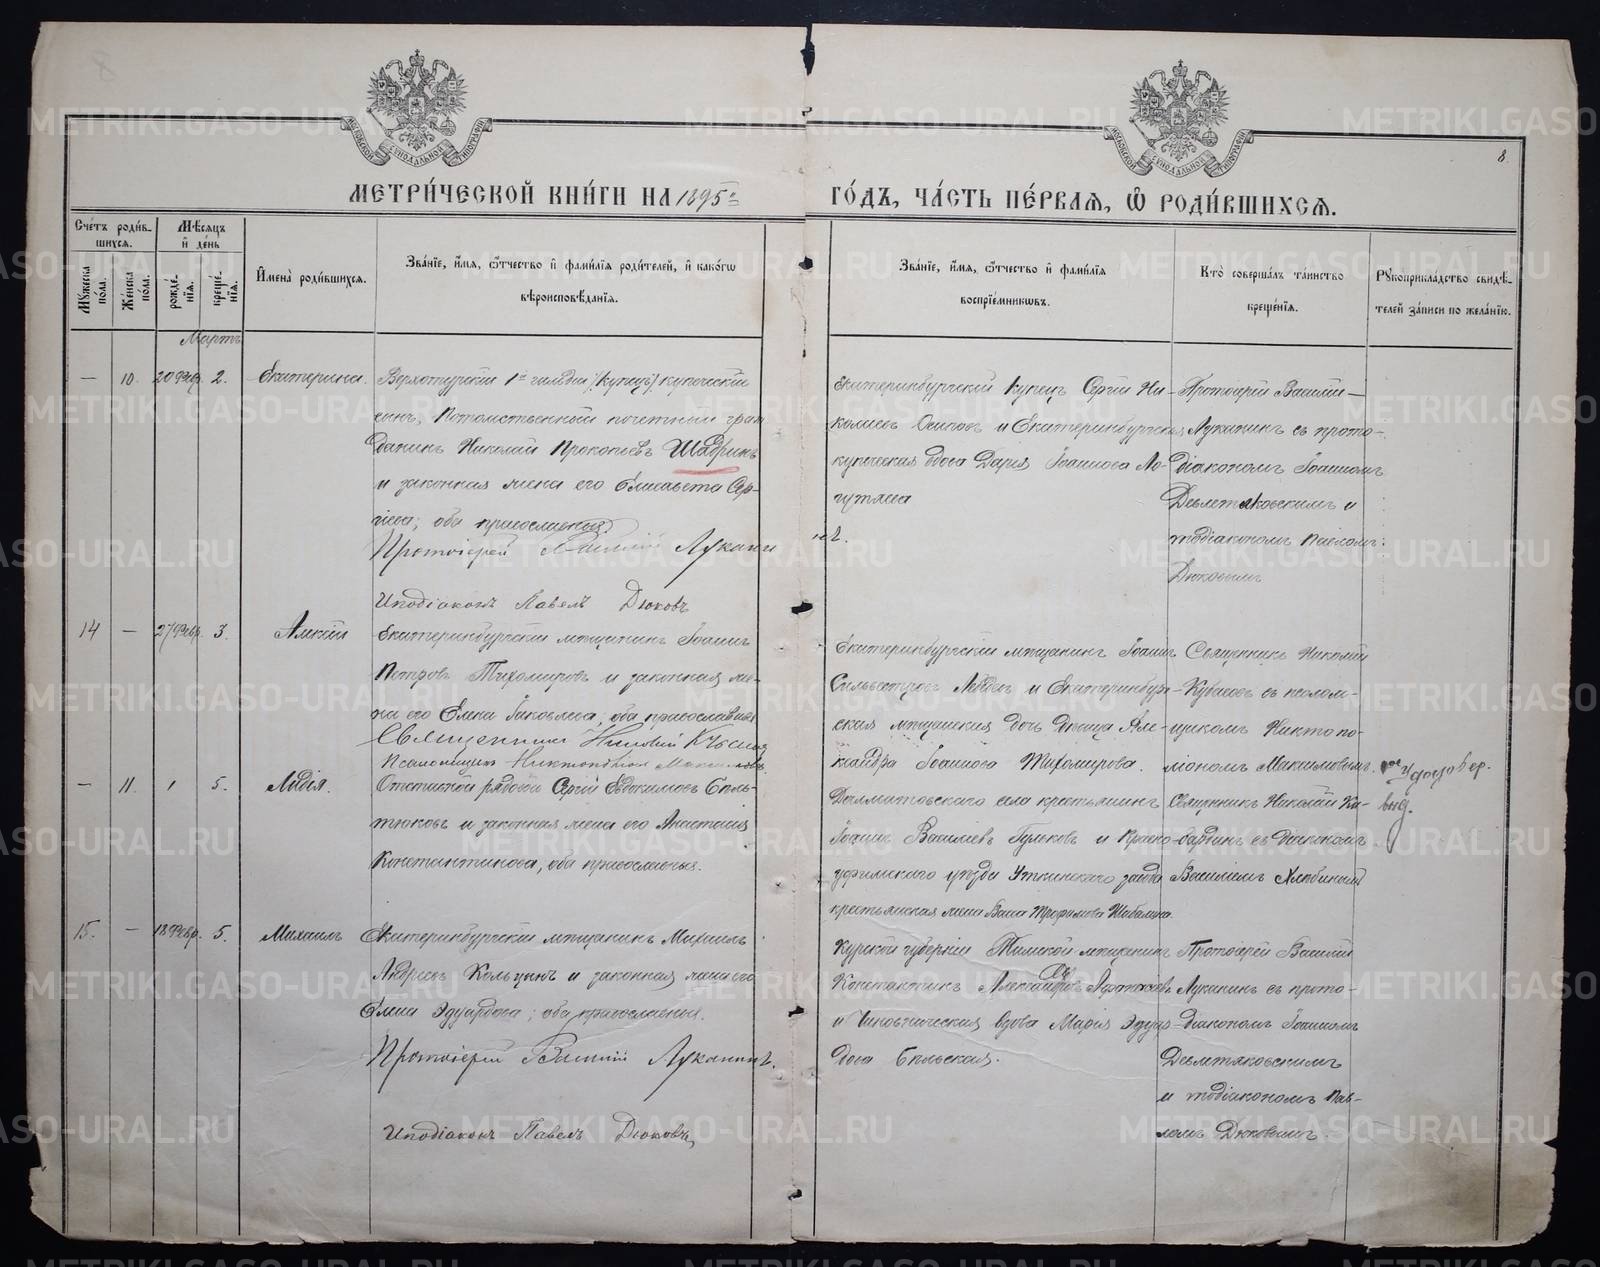 8
МЕТРИ́ЧЕСКОЙ КНИ́ГИ НА 1895 й
ГО́ДЪ, ЧА́СТЬ ПЕ́РВАѦ, Ѽ РОДИ́ВШИХСѦ.
МОСКОВСКОЙ СѴНОДАЛЬНОЙ ТИПОГРАФІИ
МОСКОВСКОЙ СѴНОДАЛЬНОЙ ТИПОГРАФІИ
Сче́тъ роди́вшихсѧ.
Мꙋ́жеска по́ла.
Же́нска по́ла.
Мѣ́сѧцъ и҆ де́нь
рожде́нїѧ.
креще́нїѧ.
И҆мена̀ роди́вшихсѧ.
Зва́нїе, и҆́мѧ, ѻ҆́тчество и҆ фами́лїѧ роди́телей, и҆ како́гѡ
вѣроисповѣ́данїѧ.
Зва́нїе, и҆́мѧ, ѻ҆́тчество и҆ фами́лїѧ
воспрїе́мникѡвъ.
Кто̀ соверша́лъ та́инство
креще́нїѧ.
Рꙋкоприкла́дство свидѣ́-
телей за́писи по жела́нїю.
Мартъ
— 10. 20 Февр. 2. Екатерина.
Верхотурскій 1й гильдіи (купецъ) купеческій
сынъ, Потомственный почетный граж
данинъ Николай Прокопьевъ Шадринъ
и законная жена его Елисавета Сер-
гіева; оба православные
Протоіерей Василій Луканинъ.
Иподіаконъ Павелъ Дюковъ
Екатеринбургскій купецъ Сергій Ни-
колаевъ Осиповъ и Екатеринбургская
купеческая вдова Дарія Іоаннова Ло-
гутяева
Протоіерей Василій
Луканинъ съ прото-
діакономъ Іоанномъ
Девлетяковскимъ и
иподіакономъ Павломъ
Дюковымъ
14 — 27 Февр. 3. Алексій
Екатеринбургскій мѣщанинъ Іоаннъ
Петровъ Тихомировъ и законная же-
на его Елена Іаковлева, оба православные
Священникъ Николай
Псаломщикъ Никтополіонъ Максимовъ.
Екатеринбургскій мѣщанинъ Іоаннъ
Сильвестровъ и Екатеринбург-
ская мѣщанская дочь дѣвица Але-
ксандра Іоаннова Тихомирова.
Священникъ Николай
съ псалом-
щикомъ Никтопо-
ліономъ Максимовымъ.
— 11. 1 5. Лидія.
Отставной рядовой Сергій Евдокимовъ
и законная жена его Анастасія
Константинова, оба православные.
Далматовскаго села крестьянинъ
Іоаннъ Васильевъ Гульковъ и Красно-
уфимскаго уѣзда Уткинскаго завода
крестьянская жена Трофимова
Священникъ Николай
съ діакономъ
Василіемъ Хлѣбинымъ
удостовер.
выд.
15. — 18 Февр. 5. Михаилъ
Екатеринбургскій мѣщанинъ Михаилъ
Андреевъ Кольцынъ и законная жена его
Елена Эдуардова; оба православные.
Протоіерей Василій Луканинъ.
Иподіаконъ Павелъ Дюковъ
Курской губерніи Тимской мѣщанинъ
Константинъ Александровъ
и чиновническая вдова Марія Эдуар-
дова Бѣльская.
Протоіерей Василій
Луканинъ съ прото-
діакономъ Іоанномъ
Девлетяковскимъ
и иподіакономъ Пав-
ломъ Дюковымъ.
METRIKI.GASO-URAL.RU